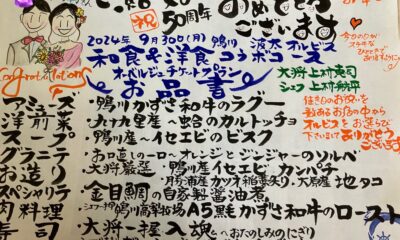 祝
50周年
おめでとう
ございます
Congratulations
2024年9月30日(月) 鴨川 波太 オルビス
和食&洋食コラボコース
オーベルジュチケットプラン
お品書
大将 上村
シェフ 上村
アミューズ ・鴨川かずさ和牛のラグー
洋前菜 ・九十九里産〜蛤のカルトッチョ
スープ ・鴨川産イセエビのビスク
グラニテ ・お口直しの一口 オレンジとジンジャーのソルベ
お造り ・大将厳選 鴨川産イセエビ カンパチ
カツオ 大原産 地タコ
スペシャリテ ・金目鯛の自家製醤油煮
肉料理 鴨川高梨牧場A5黒かずさ和牛のロースト
寿司 ・大将一握入魂 おたのしみのにぎり
佳き日のお祝いを
数あるお店の中から
オルビスをお選び
下さいまして
ありがとう
ございます